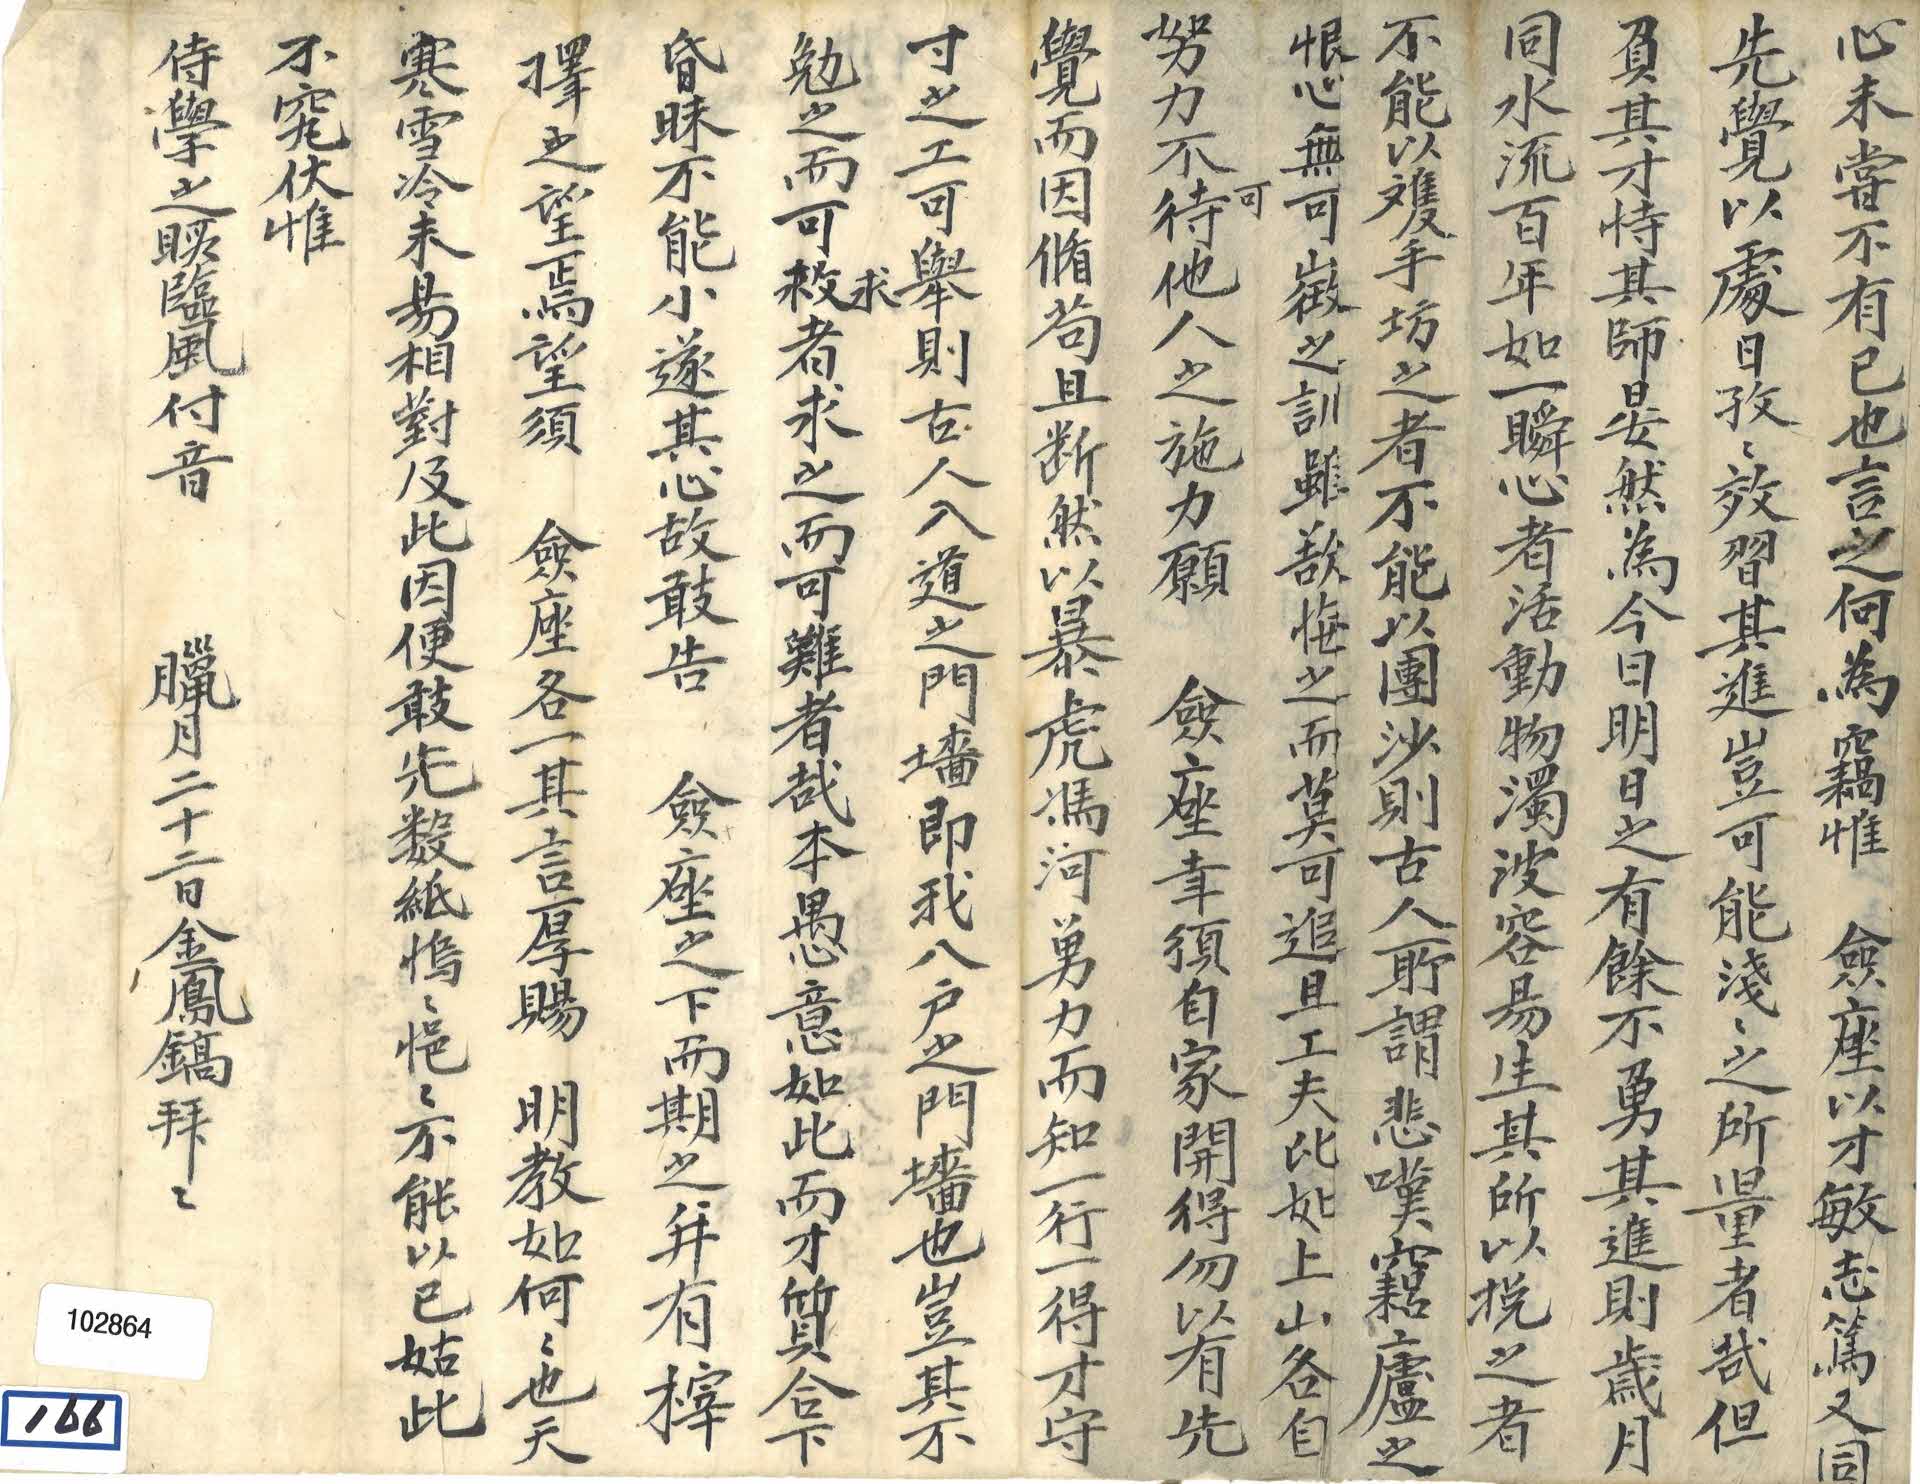 心未嘗不有已也言之何為竊惟 僉座以才敏志篤又同
先覺以處日孜〻效習其進豈可能淺〻之所量者哉但
負其才恃其師晏然為今日明日之有餘不勇其進則歲月
同水流百年如一瞬心者活動物濁波容易生其所以挽之者
不能以雙手坊之者不能以團沙則古人所謂悲嘆窮廬之
恨心無可嶽之訓雖歎悔之而莫可追且工夫比如上山各自
努力不待可他人之施力願 僉座幸須自家開得勿以有先
覺而因脩苟且断然以暴虎馮河勇力而知一行一得才守
寸之工可舉則古人入道之門墻即我入戶之門墻也豈其不
勉之而可求者求之而可難者哉本愚意如此而才質合下
昏昧不能小遂其心故敢告 僉座之下而期之并有
擇之望焉望須 僉座各一其言厚賜 明教如何〻也天
寒雪冷未易相對及此因便敢先数紙悗〻不能以已姑此
不究伏惟
侍學之暇臨風付音 臘月二十二日金鳳鎬拜〻
102864
166